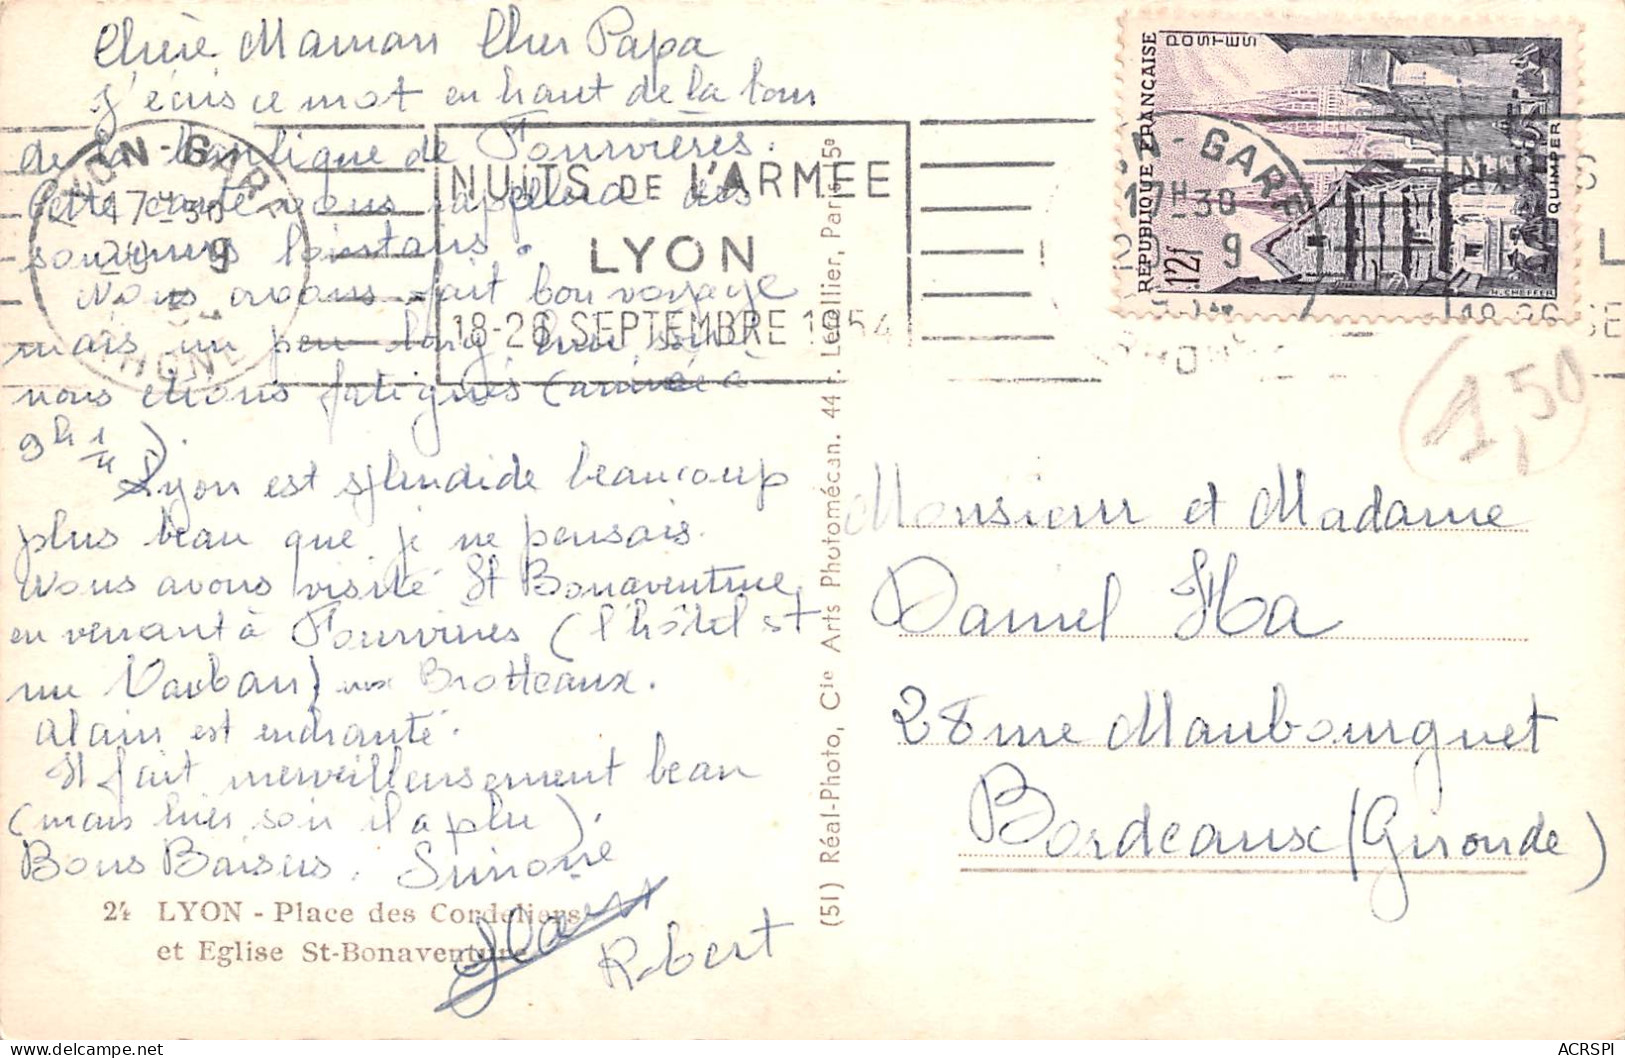 Chère Maman Cher Papa
J'écris ce mot en haut de la tour
de la basilique de Fourvières.
Cette carte vous rappellera des
souvenirs lointains.
Nous avons fait bon voyage
mais un peu long hier soir
nous étions fatigués (arrivée à
9h 1/4).
Lyon est splendide beaucoup
plus beau que je ne pensais.
Nous avons visité St Bonaventure
en venant à Fourvières (l'hôtel est
rue Vauban) aux Brotteaux.
Alain est enchanté.
Il fait merveilleusement beau
(mais hier soir il a plu).
Bons Baisers. Simone
Alain
Robert
24 LYON - Place des Cordeliers
et Eglise St-Bonaventure
LYON-GARE
17H-30
9
RHONE
NUITS DE L'ARMEE
LYON
18-26 SEPTEMBRE 1954
(51) Réal-Photo, Cie Arts Photomécan. 44 r. Letellier, Paris-15e
REPUBLIQUE FRANÇAISE
POSTES
12f
QUIMPER
H. CHEFFER
GARE
17H-30
9
18-26 SE
1,50
Monsieur et Madame
Daniel Ha
28 rue Maubourguet
Bordeaux (Gironde)
ACRSPI